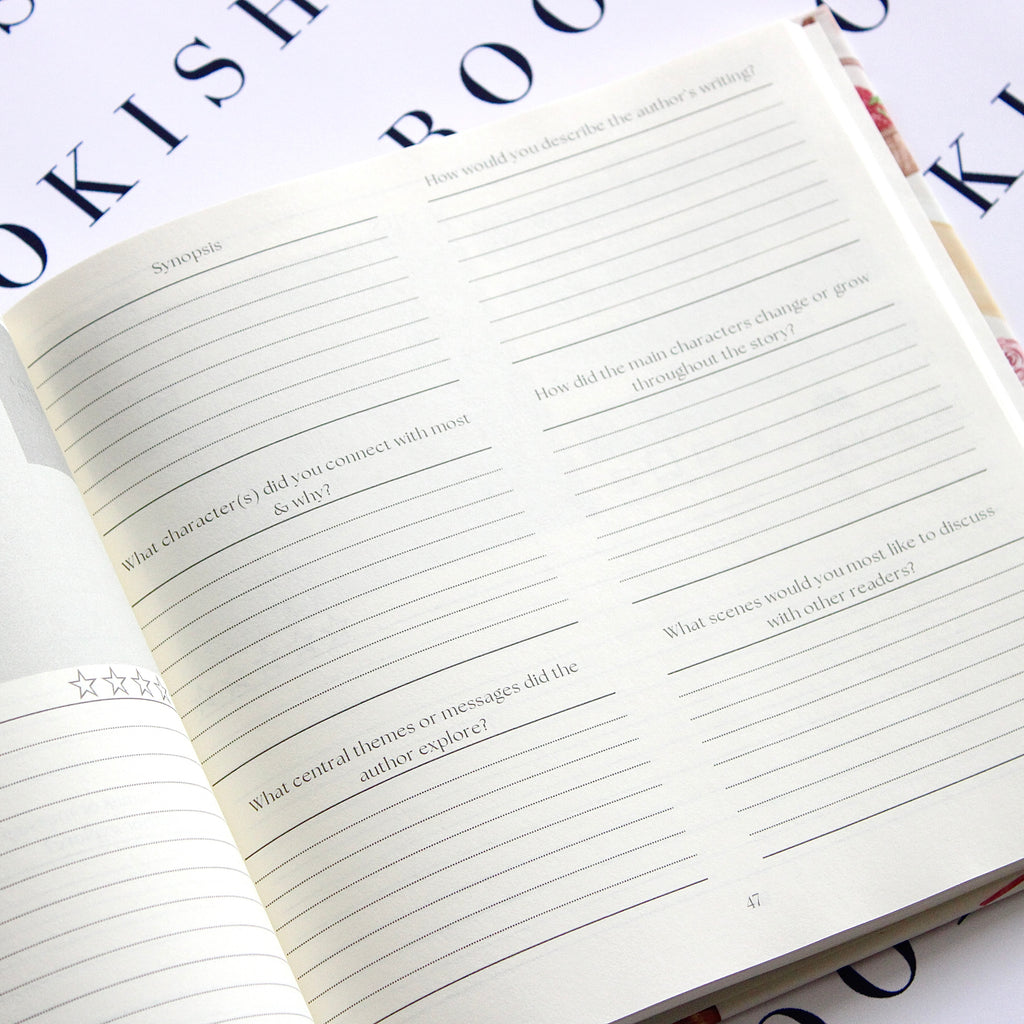 OKISH
BOO
KI
Synopsis
What character(s) did you connect with most
& why?
What central themes or messages did the
author explore?
How would you describe the author's writing?
How did the main characters change or grow
throughout the story?
What scenes would you most like to discuss
with other readers?
47